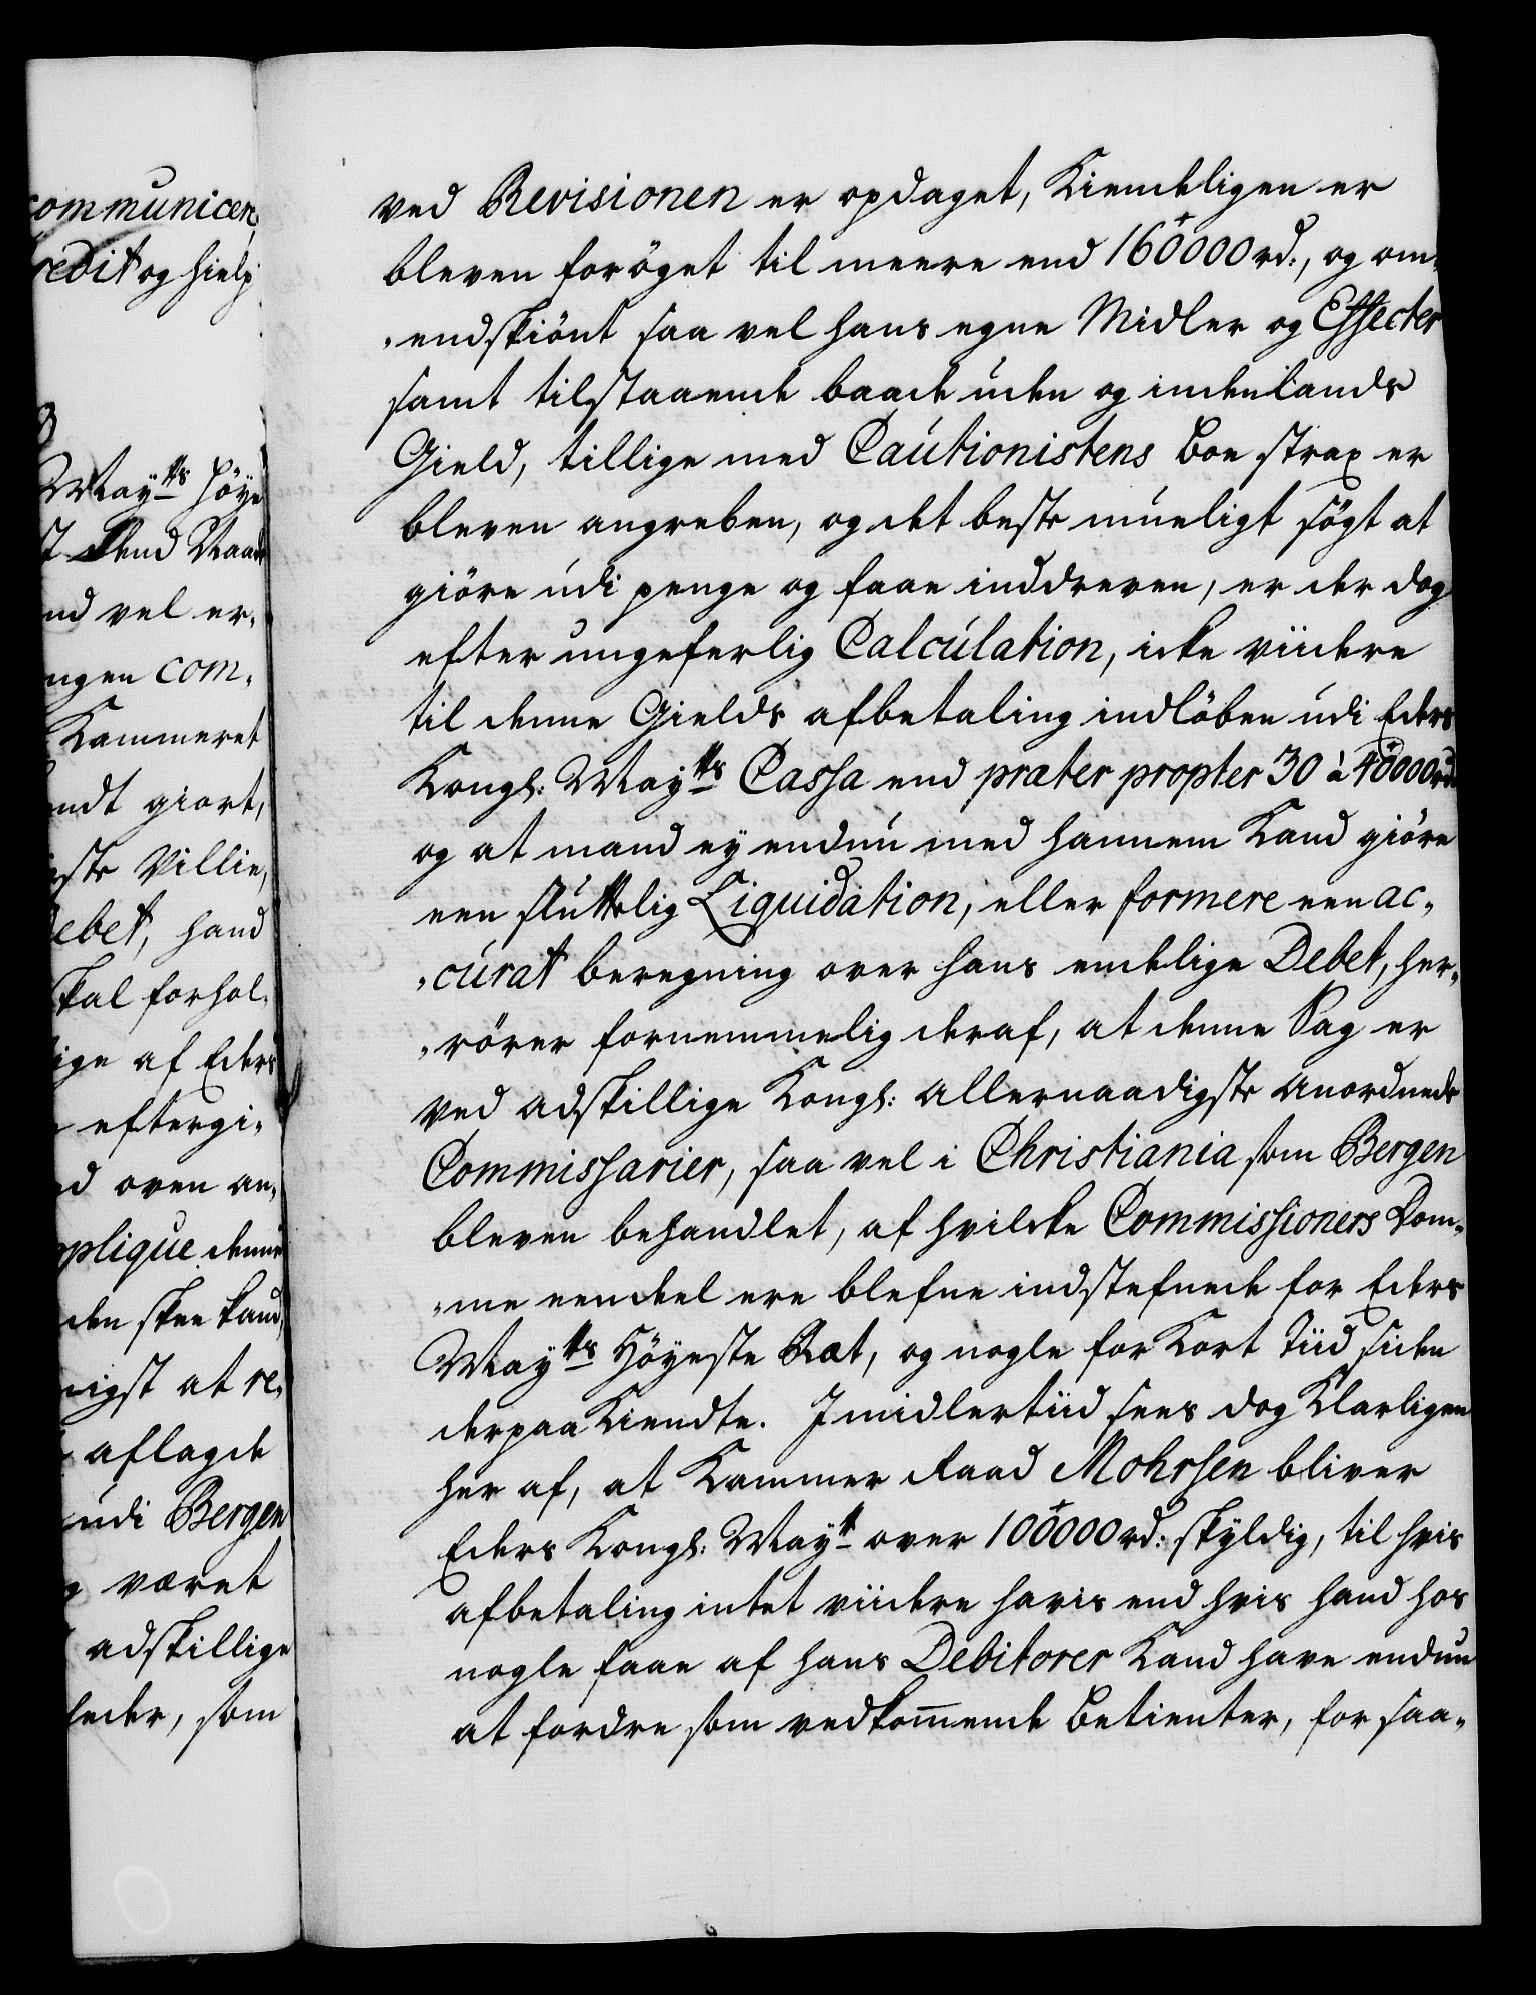 communicer,
redit og hielp
Mayts Höye
nd vel er„
ngen com„
Kammeret
ndt giort,
ste Villie,
ebet, hand
skal forhol„
ige af Eders
eftergi„
d oven an„
plique denne
den skee kand,
nigst at re„
aflagde
udi Bergen
været
adskillige
som
ved Revisionen er opdaget, Kiendeligen er
bleven forøget til meere end 160000 rd:, og om„
„endskiönt saa vel hans egne Midler og Effecter
samt tilstaaende baade uden og indenlands
Gield, tillige med Cautionistens Boe strax er
bleven angreben, og det beste mueligt søgt at
giöre udi penge og faae inddreven, er der dog
efter ungeferlig Calculation, icke viidere
til denne Gields afbetaling indlöben udi Eders
Kongl: Mayts Cassa end præter propter 30 à 40000 rd
og at mand ey endnu med hannem Kand giöre
een sluttelig Liquidation, eller formere een ac„
„curat beregning over hans endelige Debet, her„
„rörer fornemmelig deraf, at denne Sag er
ved adskillige Kongl: allernaadigste anordnede
Commissarier, saa vel i Christiania som Bergen
bleven behandlet, af hvilcke Commissioners Dom„
„me eendeel ere blefne indstefnede for Eders
Mayts Höyeste Ræt, og nogle for Kort Tiid siden
derpaa Kiendte. Imidlertiid sees dog Klarligen
her af, at Kammer Raad Mohrsen bliver
Eders Kongl: Mayt over 100000 rd: skyldig, til hvis
afbetaling intet viidere haves end hvis hand hos
nogle faae af hans Debitorer Kand have endnu
at fordre som vedkom̄ende Betienter, for saa„